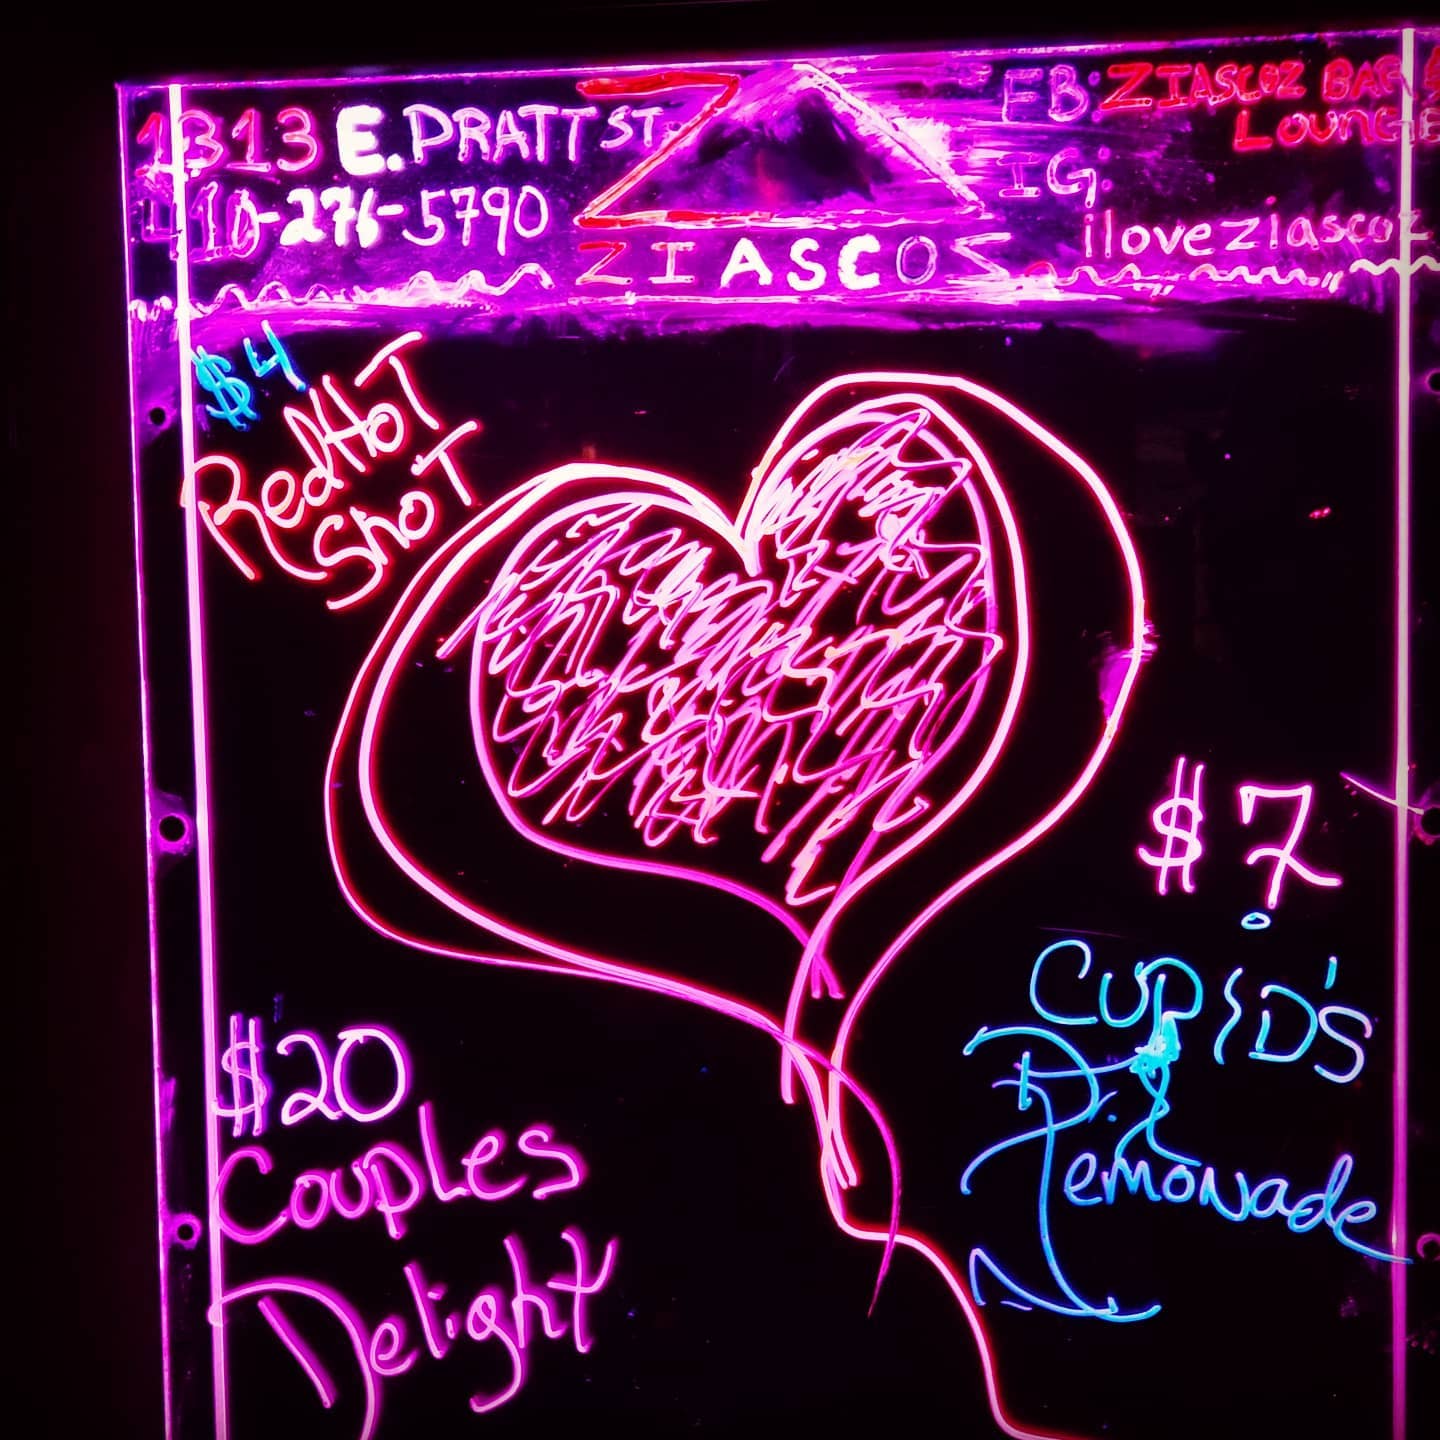 1313 E. PRATT ST.
410-276-5790
ZIASCOZ
FB: ZIASCOZ BAR &
LOUNGE
IG:
iloveziascoz
$4
Red HoT
ShoT
$7
CUPID'S
Lemonade
$20
Couples
Delight